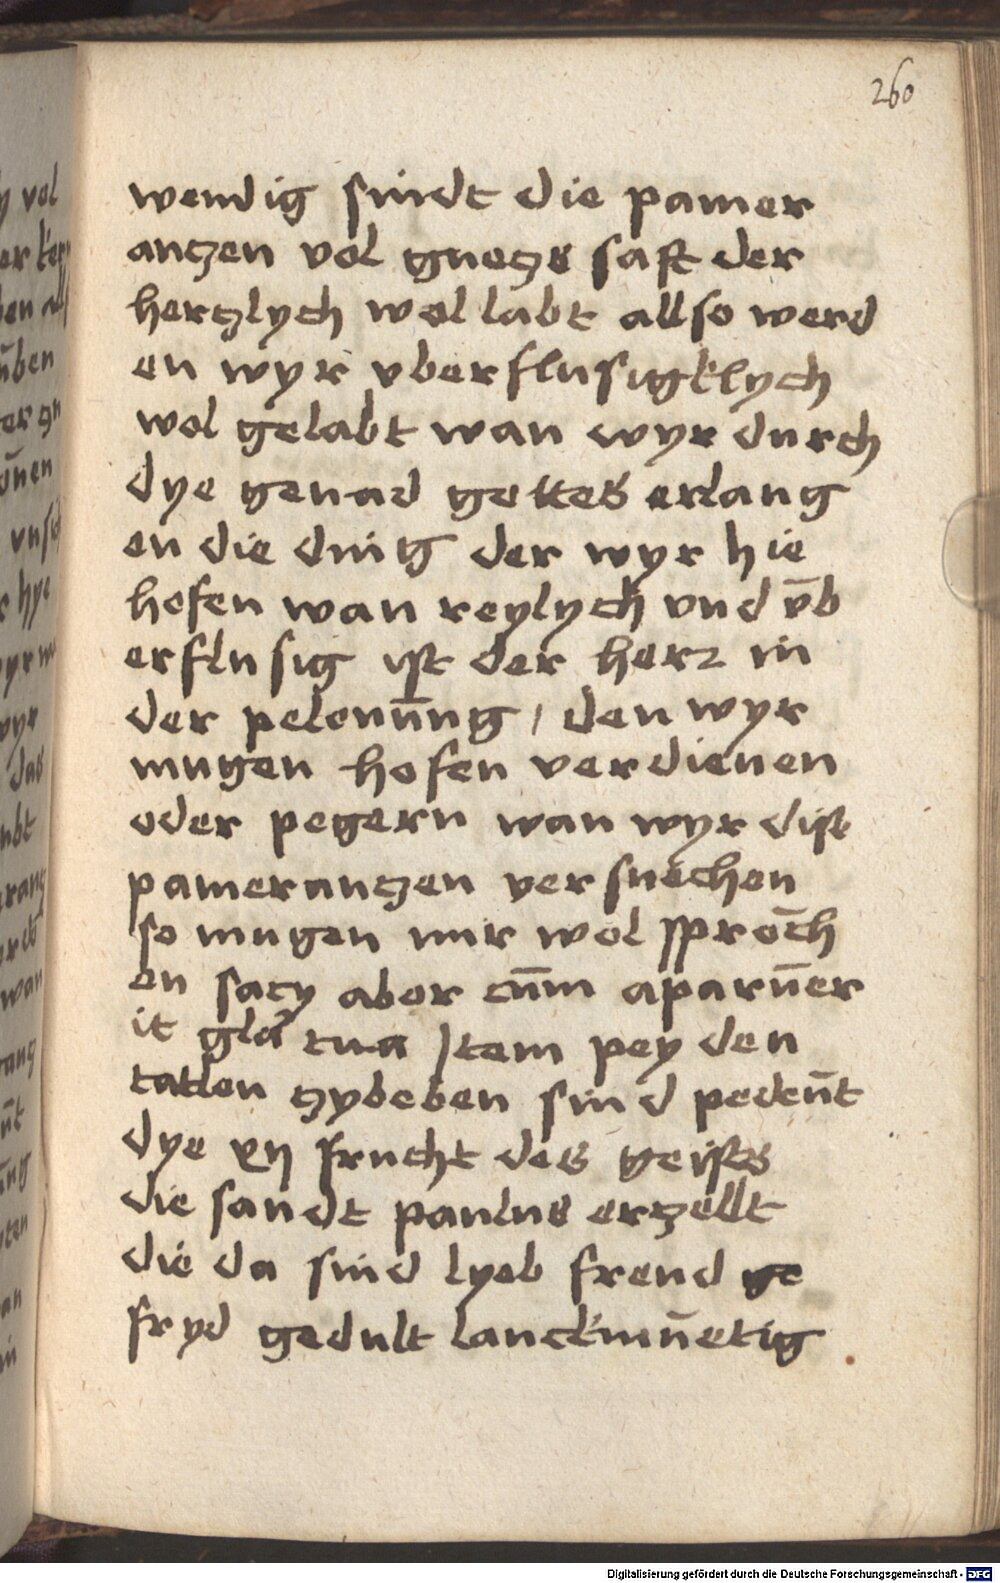 260
wendig sindt die pamer
anczen vol guecz saft der
herczlych wol labt allso werd
en wyr vberflusigklych
wol gelabt wan wyr durch
dye genad gottes erlang
en die ding der wyr hie
hofen wan reylych vnd v̄b
erflusig ist der herz in
der pelonūng / den wyr
mugen hofen verdienen
oder pegern wan wyr dise
pameranczen versuechen
so mugen mir wol sprōch
en sacy abor cūm aparūer
it gla tua Item pey den
tatlen zybeben sind pedeūt
dye xij frucht des geists
die sandt paulus erzellt
die da sind lyeb freud
fryd gedult lanckmūetig
Digitalisierung gefördert durch die Deutsche Forschungsgemeinschaft - DFG